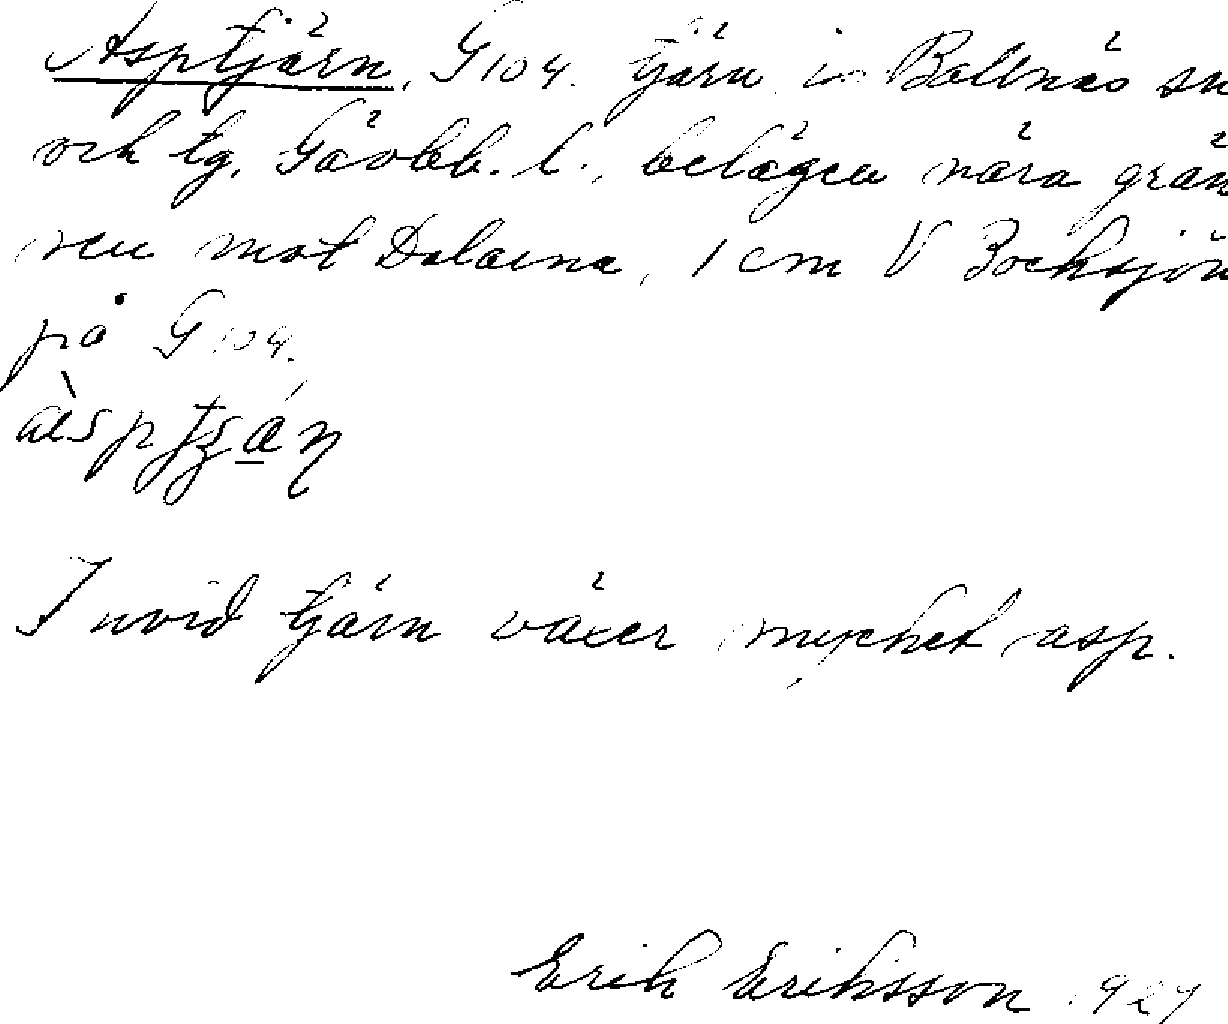 Asptjärn, G104. tjärn i Bollnäs sn
och tg, Gävleb. l., belägen nära grän
sen mot Dalarna, 1 cm V Bocksjön
på G104.
àsptʃá̱ɳ
Invid tjärn växer mycket asp.
Erik Eriksson 1927